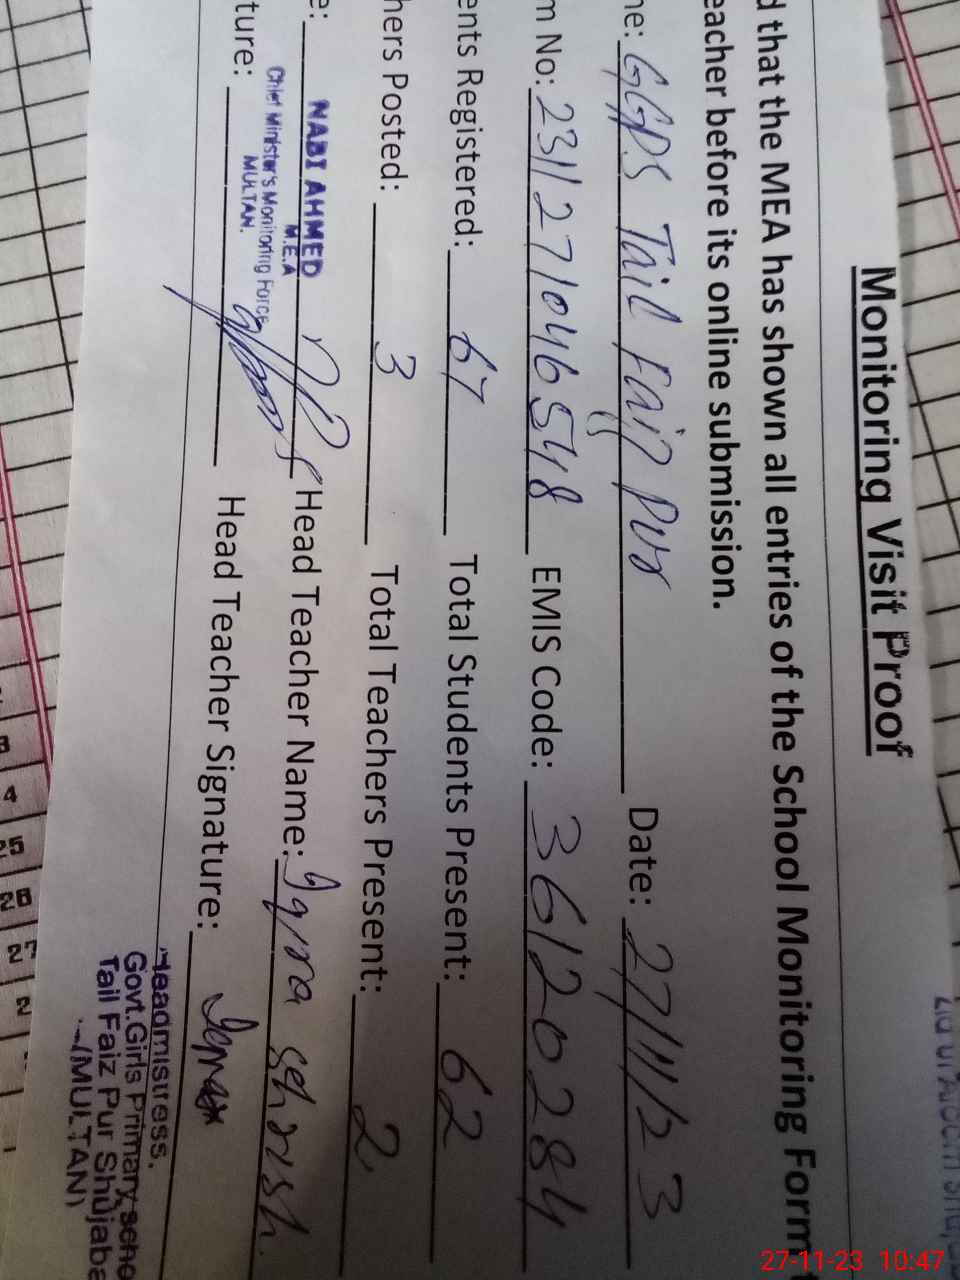 Monitoring Visit Proof
d that the MEA has shown all entries of the School Monitoring Form
eacher before its online submission.
ne: GGPS Tail Faiz Pur Date: 27/11/23
m No: 231271046548 EMIS Code: 36120284
ents Registered: 67 Total Students Present: 62
hers Posted: 3 Total Teachers Present: 2
e: NABI AHMED Head Teacher Name: Iqra sehrish.
M.E.A
Chief Minister's Monitoring Force
MULTAN.
ture: Head Teacher Signature:
Headmistress.
Govt.Girls Primary scho
Tail Faiz Pur Shujaba
(MULTAN)
3
4
25
26
27
27-11-23 10:47